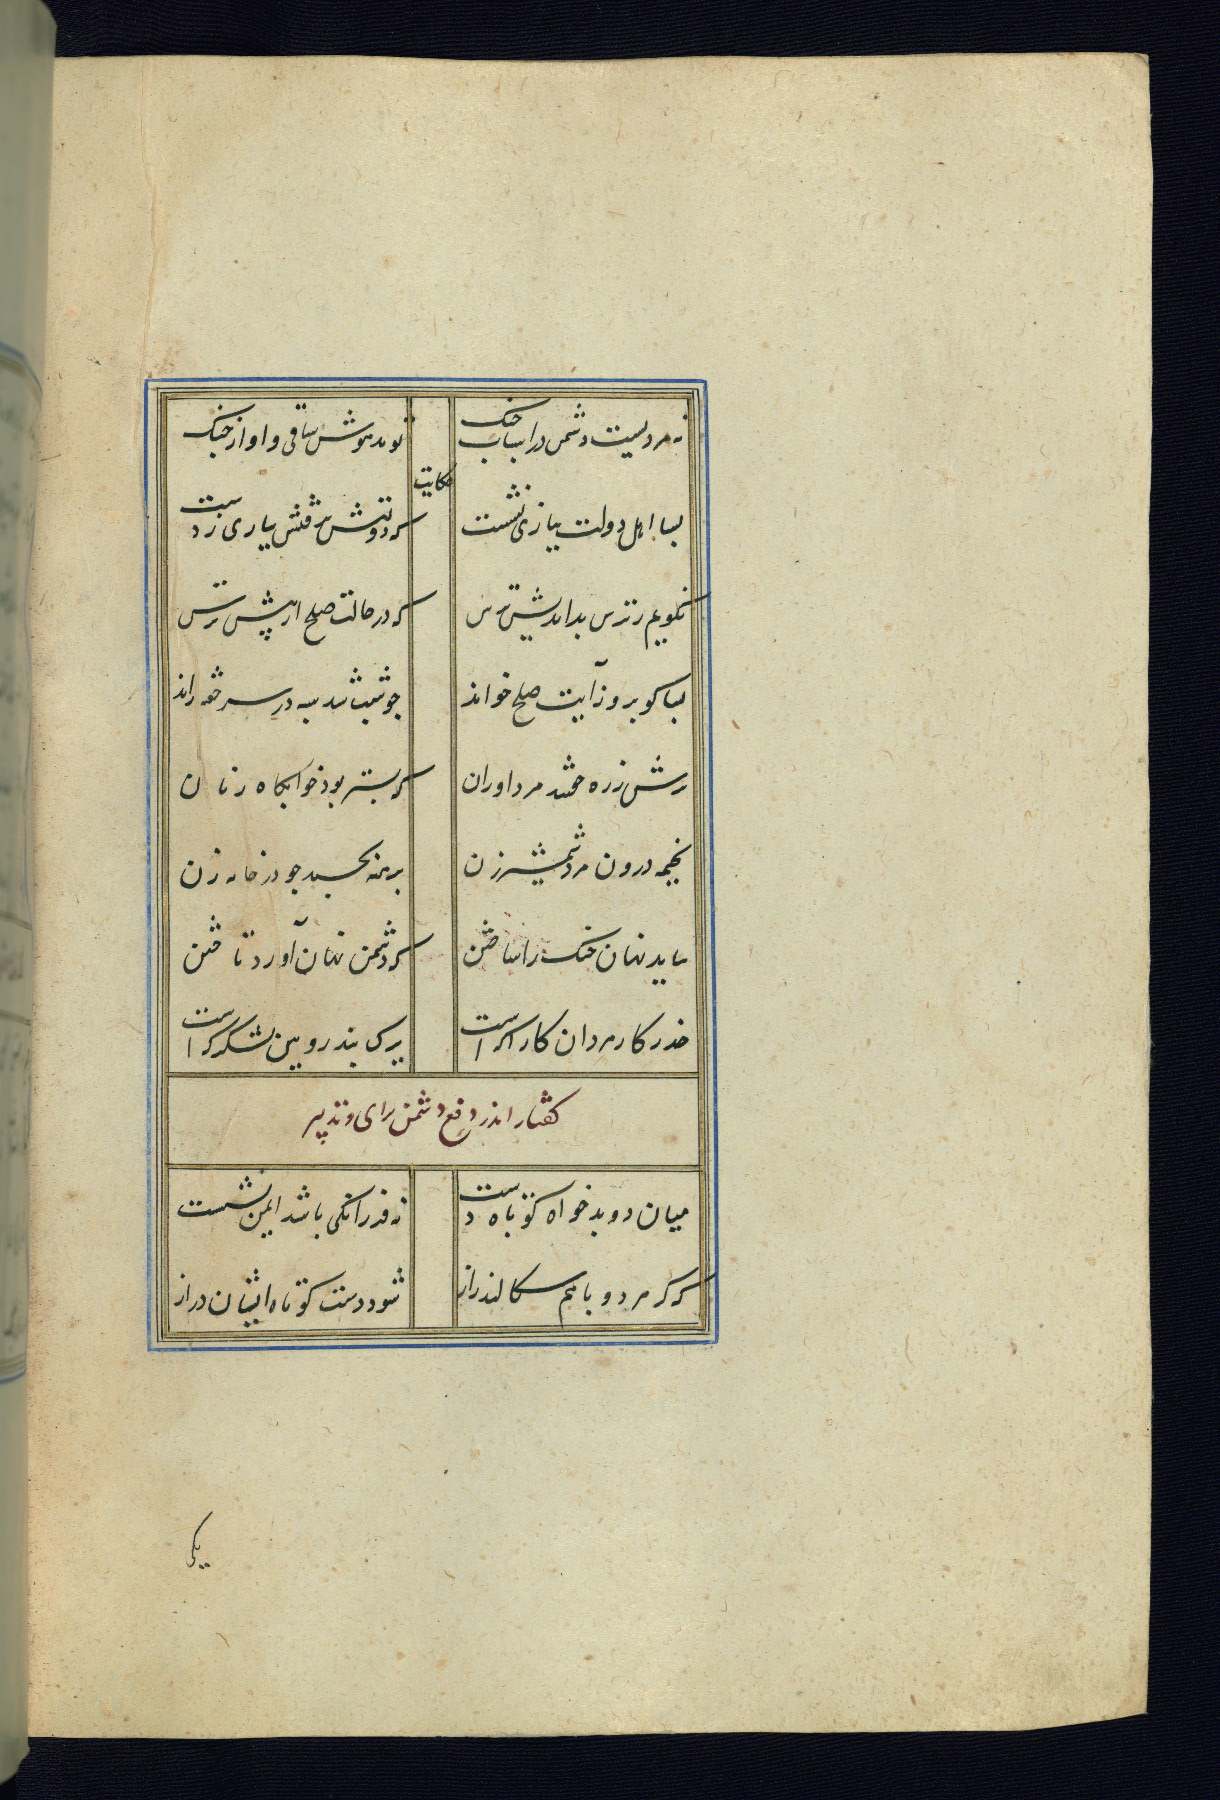 نه مردیست دشمن در اسباب جنک
تو مدهوش ساقی و اواز جنک
حکایت
بسا اهل دولت ببازی نشست
که دولت برفتش ببازی ز دست
نکویم ز ترس بداندیش ترس
که در حالت صلح ازو پیش ترس
بسا کو بروز آیت صلح خواند
جو شب شد سپه در سر خفته راند
زره پوش خسبند مرد اوژنان
که بستر بود خوابکاه زنان
بخیمه درون مرد شمشیرزن
برهنه نخسبد جو در خانه زن
بباید نهان جنک را ساختن
که دشمن نهان آورد تاختن
حذر کار مردان کاراکه است
یزک سد رویین لشکرکه است
کفتار اندر دفع دشمن برای و تدبیر
میان دو بدخواه کوتاه دست
نه فرزانکی باشد ایمن نشست
که کر هر دو باهم سکالند راز
شود دست کوتاه ایشان دراز
یکی